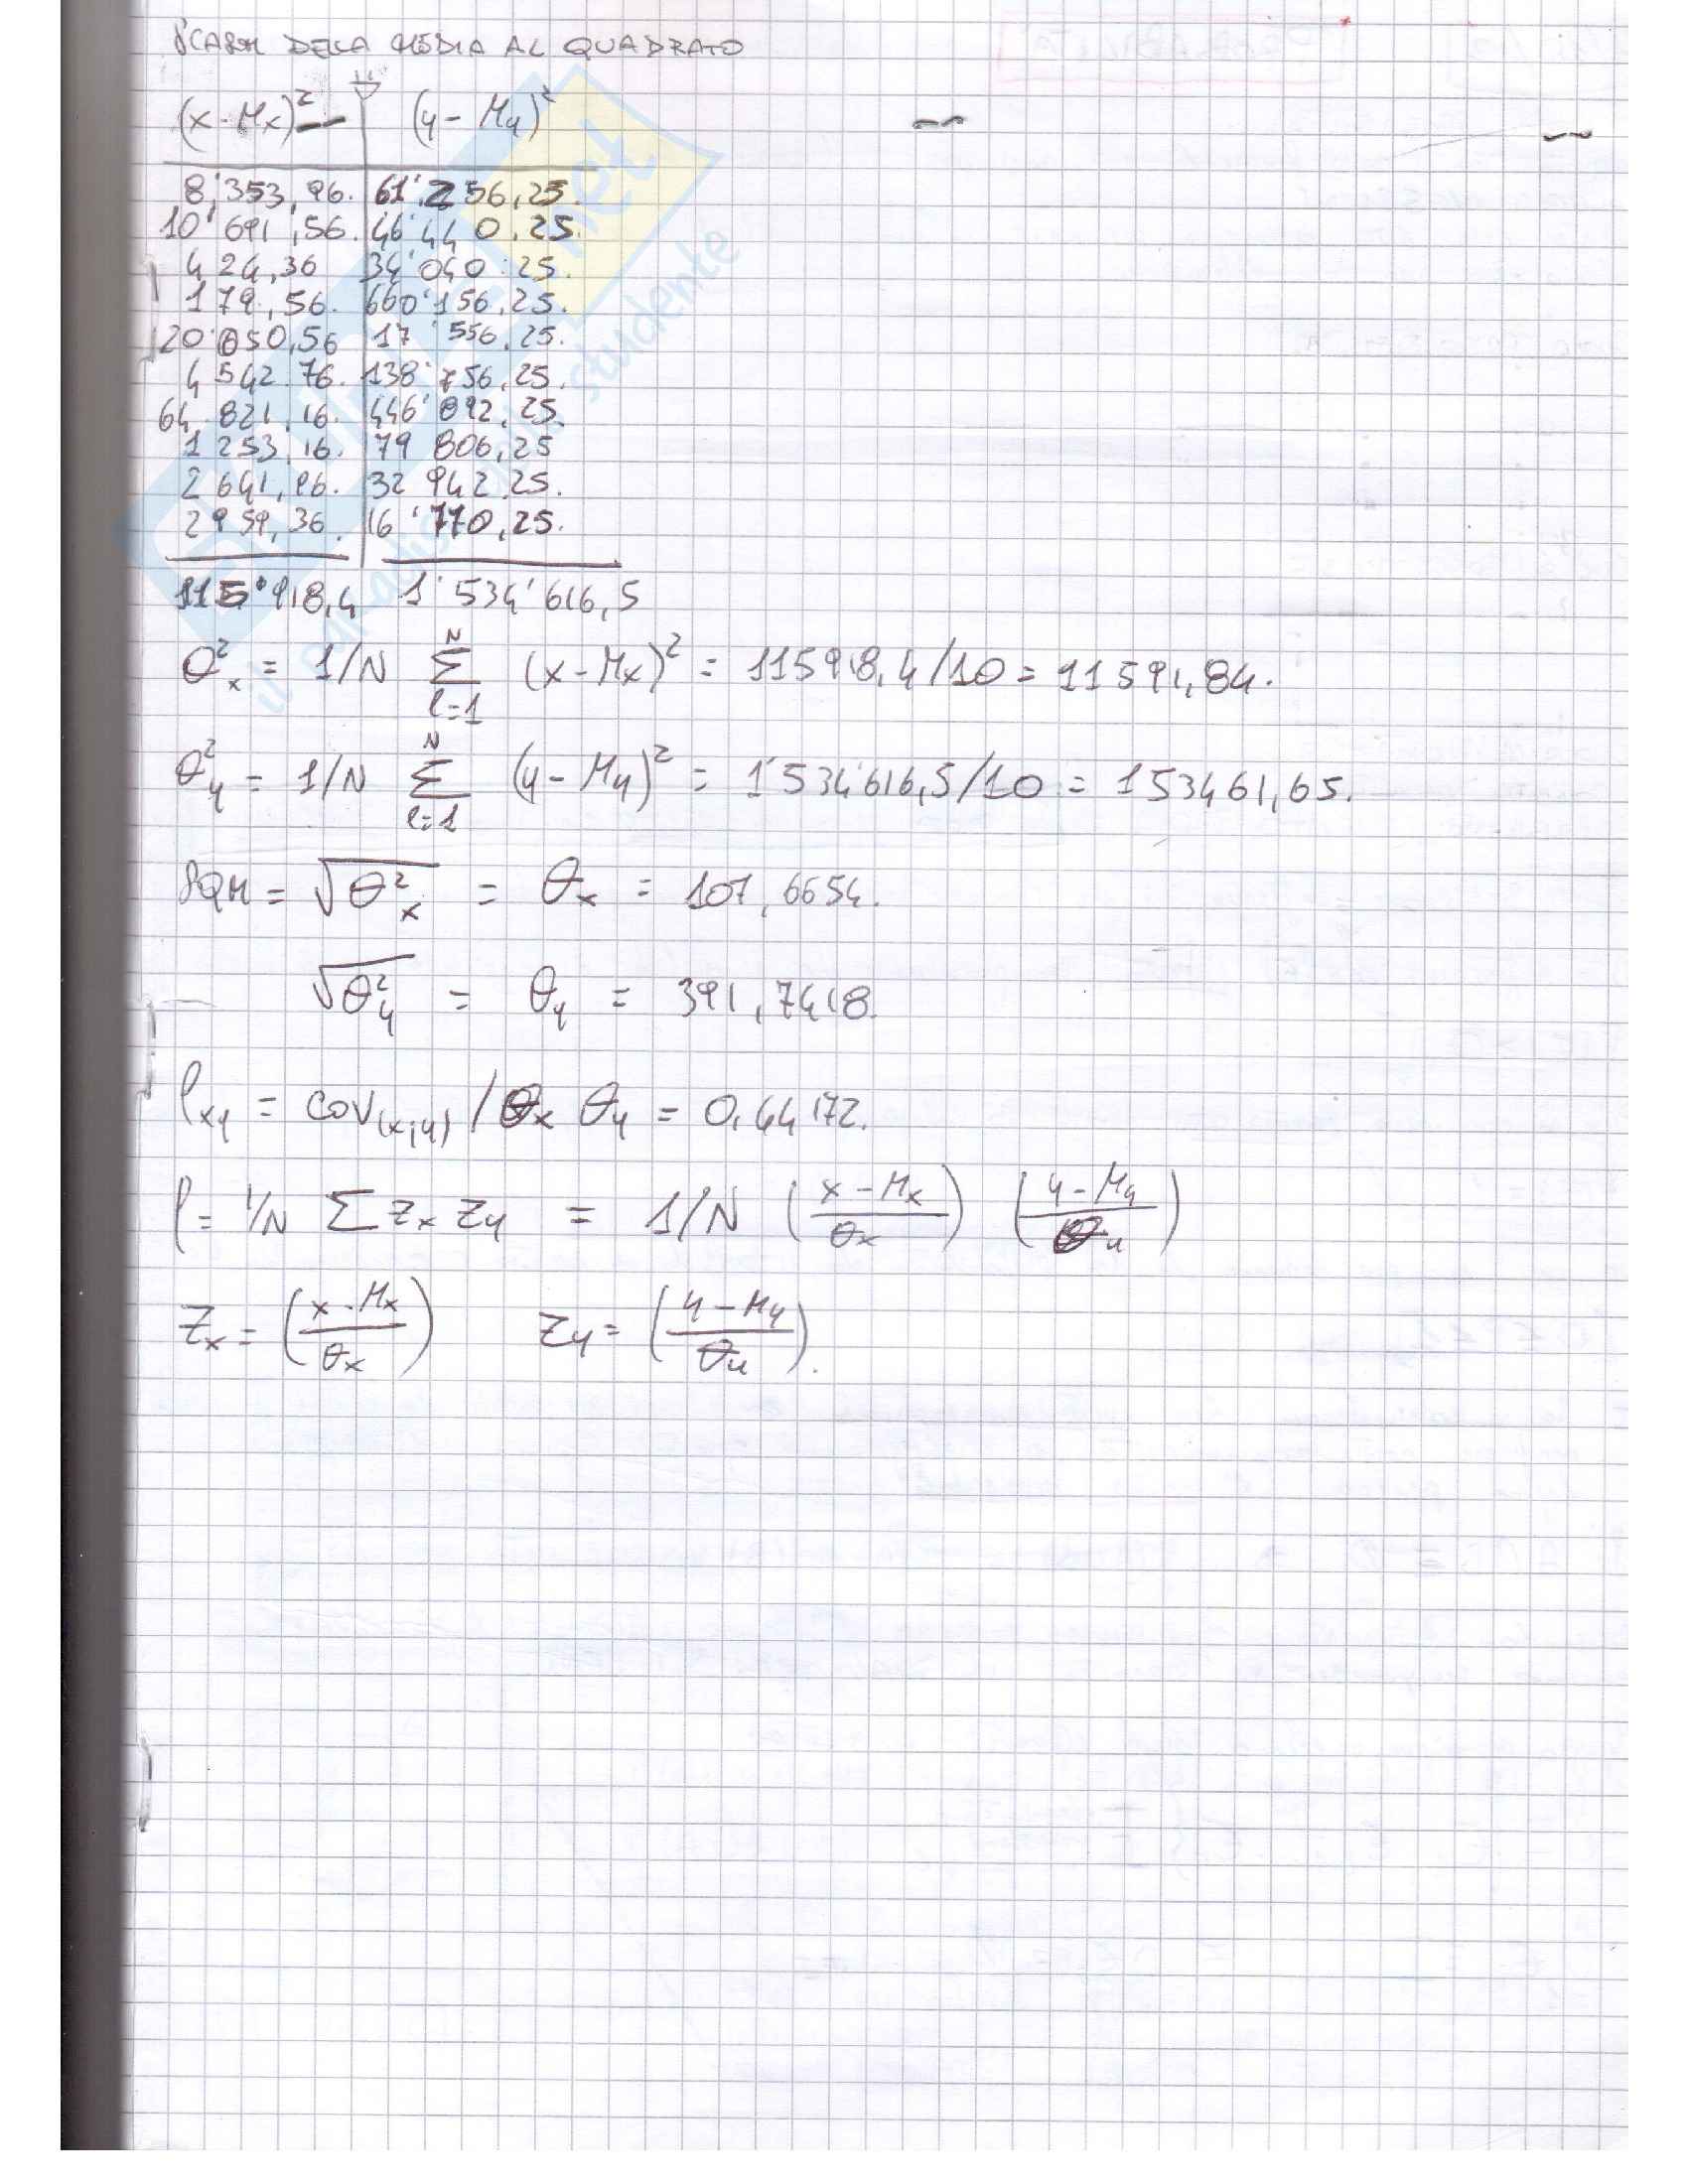 SCARTI DELLA MEDIA AL QUADRATO
(x-Mx)² (y-My)²
8'353,96. 61'256,25.
10'691,56. 46'440,25.
424,36 34'040,25.
179,56. 660'156,25.
20'050,56 17'556,25.
4542.76. 138'756,25.
64.821,16. 446'892,25.
1253,16. 79 806,25
2641,96. 32 942,25.
2959,36. 16'770,25.
115'918,4 1'534'616,5
σ²x = 1/N Σ (x-Mx)² = 115918,4/10 = 11591,84.
N
i=1
σ²y = 1/N Σ (y-My)² = 1'534'616,5/10 = 153461,65.
N
i=1
SQM = √σ²x = σx = 107,6654.
√σ²y = σy = 391,7418.
ρxy = cov(x;y) / σx σy = 0,44172.
ρ = 1/N Σ zx zy = 1/N (x-Mx / σx) (y-My / σy)
Zx = (x-Mx / σx) Zy = (y-My / σy).